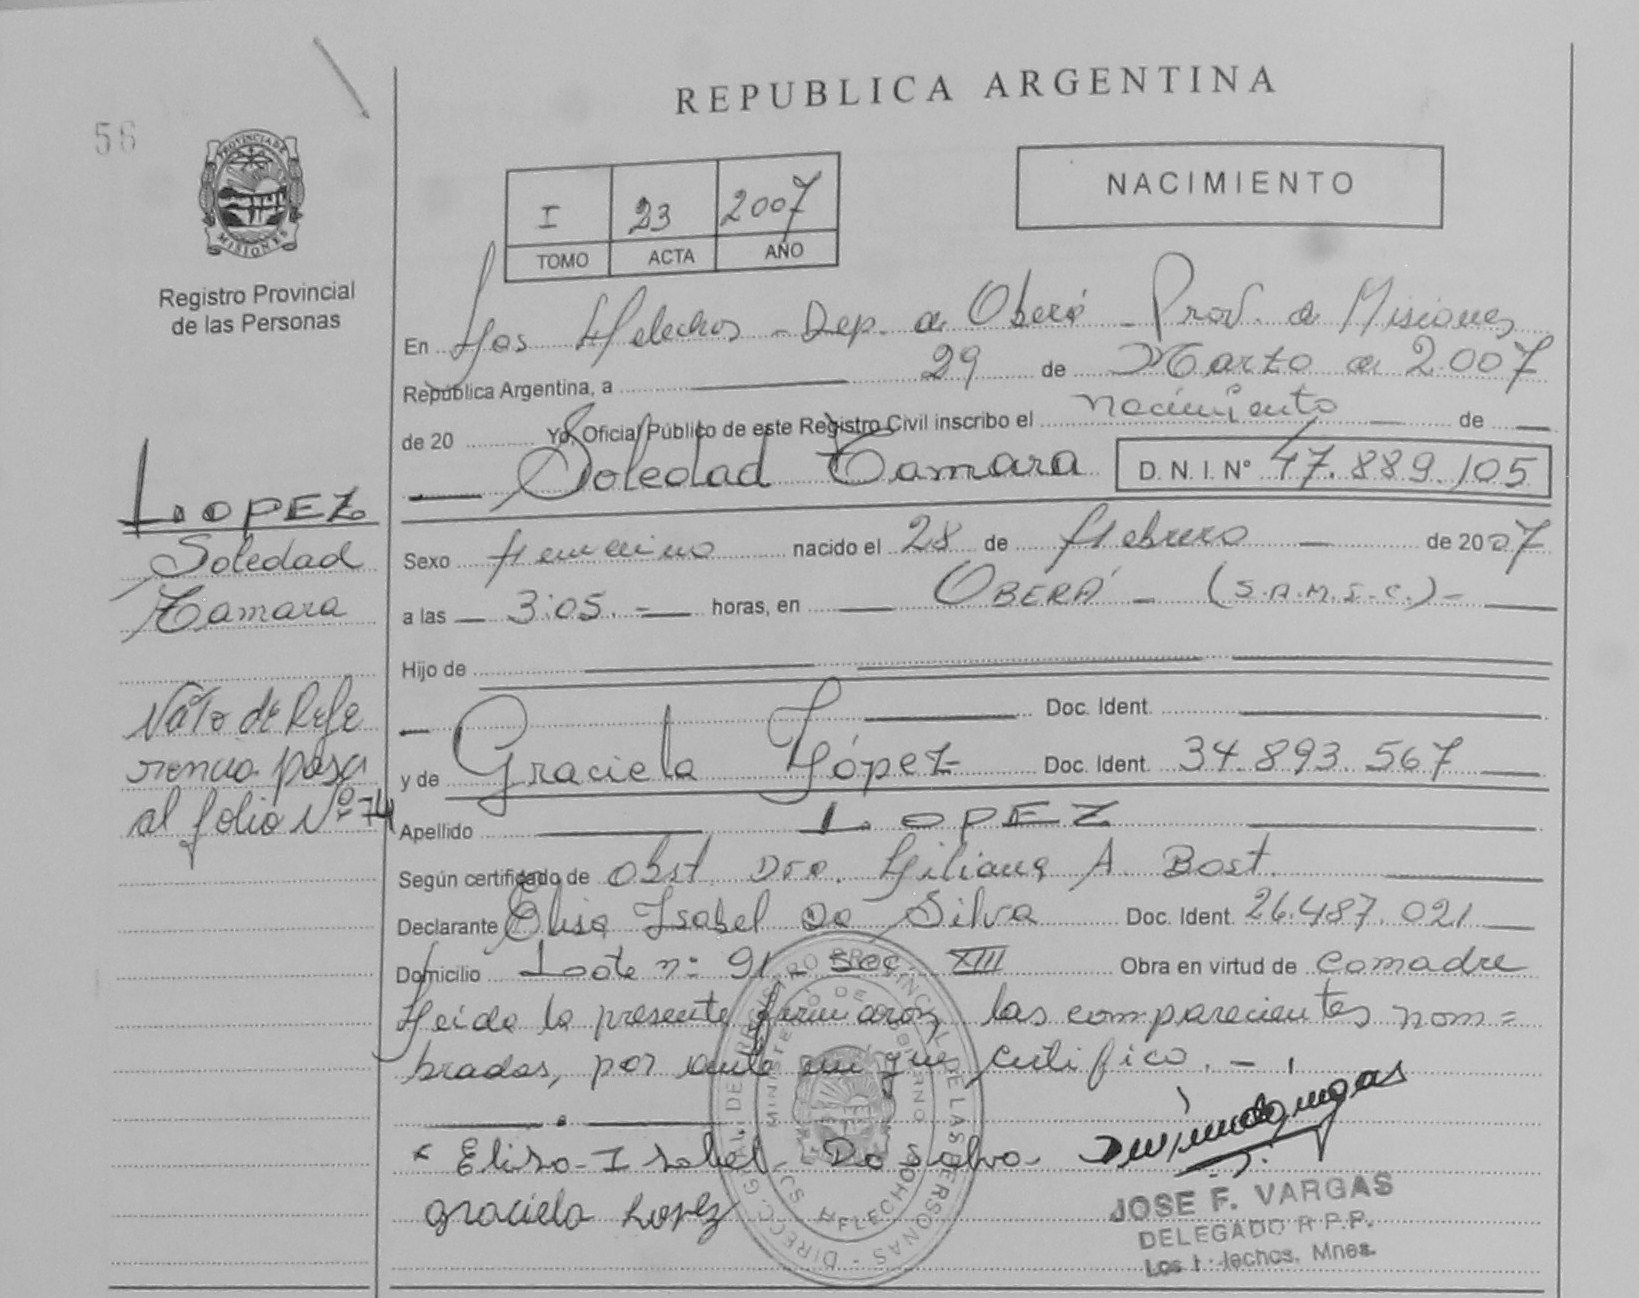 56
PROVINCIA DE
MISIONES
Registro Provincial
de las Personas
REPUBLICA ARGENTINA
I 23 2007
TOMO ACTA AÑO
NACIMIENTO
En Los Helechos - Dep. de Oberá - Prov. de Misiones
República Argentina, a 29 de Marzo de 2.007
de 20 Yo, Oficial Público de este Registro Civil inscribo el nacimiento de
Soledad Tamara D. N. I. Nº 47.889.105
Sexo femenino nacido el 28 de febrero de 2007
a las 3:05.- horas, en OBERÁ - (S.A.M.I.C.)-
Hijo de
Doc. Ident.
y de Graciela López Doc. Ident. 34.893.567
Apellido LOPEZ
Según certificado de Obst. Dra. Liliana A. Bost.
Declarante Elisa Isabel Do Silva Doc. Ident. 26.487.021
Domicilio Loote nº 91 - Sec. XIII Obra en virtud de comadre
Leida la presente firmaron las comparecientes nom=
bradas, por ante mi que certifico. -
Elisa - Isabel - Do Salva
Graciela Lopez
JOSE F. VARGAS
DELEGADO R.P.P.
Los Helechos, Mnes.
LOPEZ
Soledad
Tamara
Nato de Refe
rencia pasa
al folio Nº 74
DIRECC. GRAL. DE REGISTRO PROVINCIAL DE LAS PERSONAS
MINISTERIO DE GOBIERNO
HELECHOS